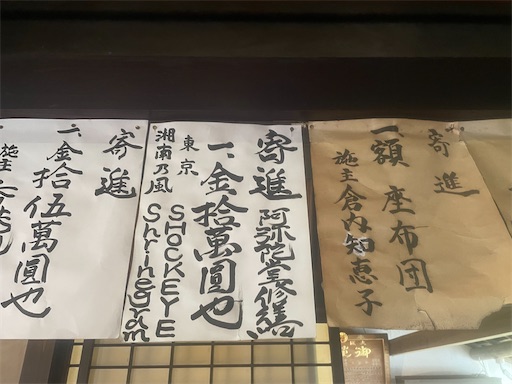 寄進
一、額 座布団
施主 倉内知恵子
寄進 阿弥陀堂修繕
一、金拾萬圓也
東京
湘南乃風
SHOCKEYE
Shrinegram
寄進
一、金拾伍萬圓也
施主
御